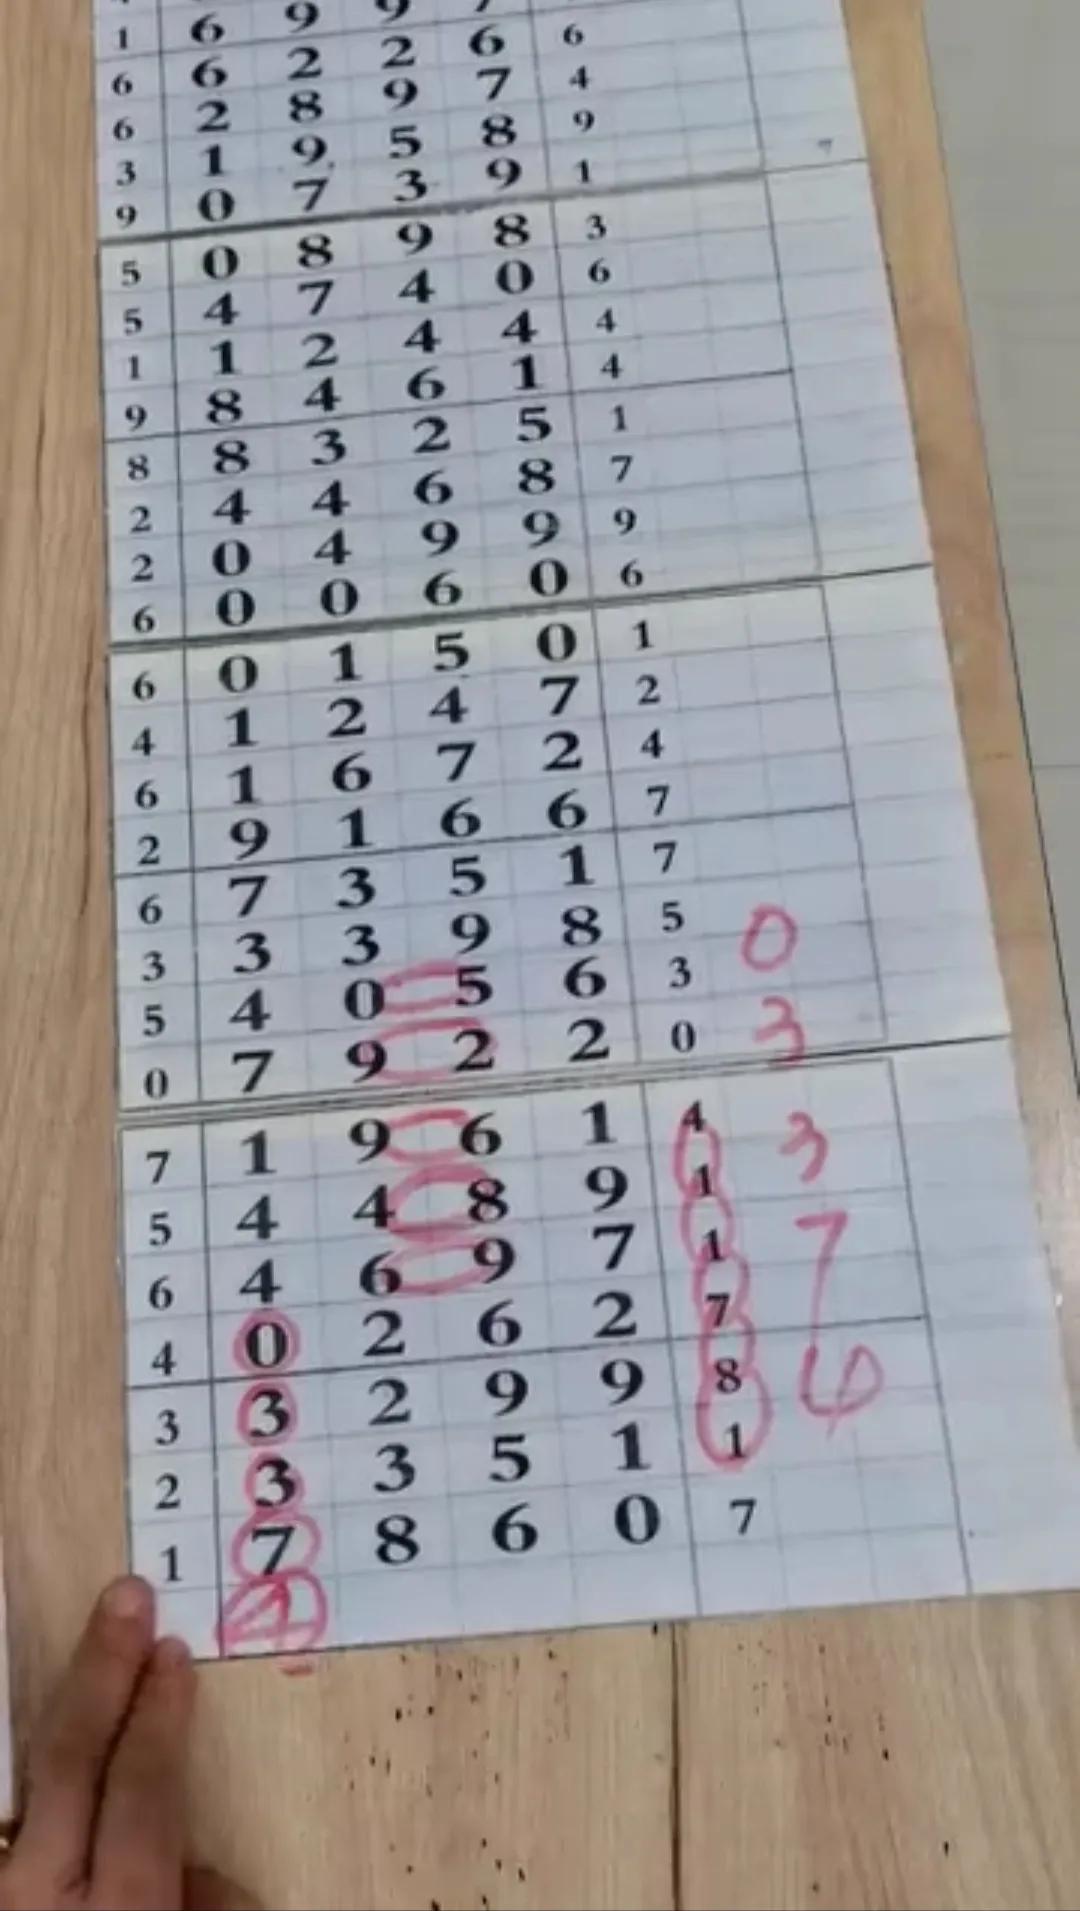 1 6 9 9 7
6 6 2 2 6 6
6 2 8 9 7 4
3 1 9 5 8 9
9 0 7 3 9 1
5 0 8 9 8 3
5 4 7 4 0 6
1 1 2 4 4 4
9 8 4 6 1 4
8 8 3 2 5 1
2 4 4 6 8 7
2 0 4 9 9 9
6 0 0 6 0 6
6 0 1 5 0 1
4 1 2 4 7 2
6 1 6 7 2 4
2 9 1 6 6 7
6 7 3 5 1 7
3 3 3 9 8 5 0
5 4 0 5 6 3
0 7 9 2 2 0 3
7 1 9 6 1 4 3
5 4 4 8 9 1
6 4 6 9 7 1 7
4 0 2 6 2 7
3 3 2 9 9 8 6
2 3 3 5 1 1
1 7 8 6 0 7
4